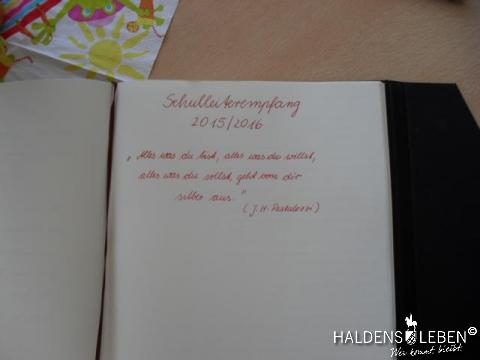 Schulleiterempfang
2015/2016
„Alles was du bist, alles was du willst,
alles was du sollst, geht von dir
selber aus."
(J. H. Pestalozzi)
HALDENSLEBEN©
Wer kommt, bleibt.